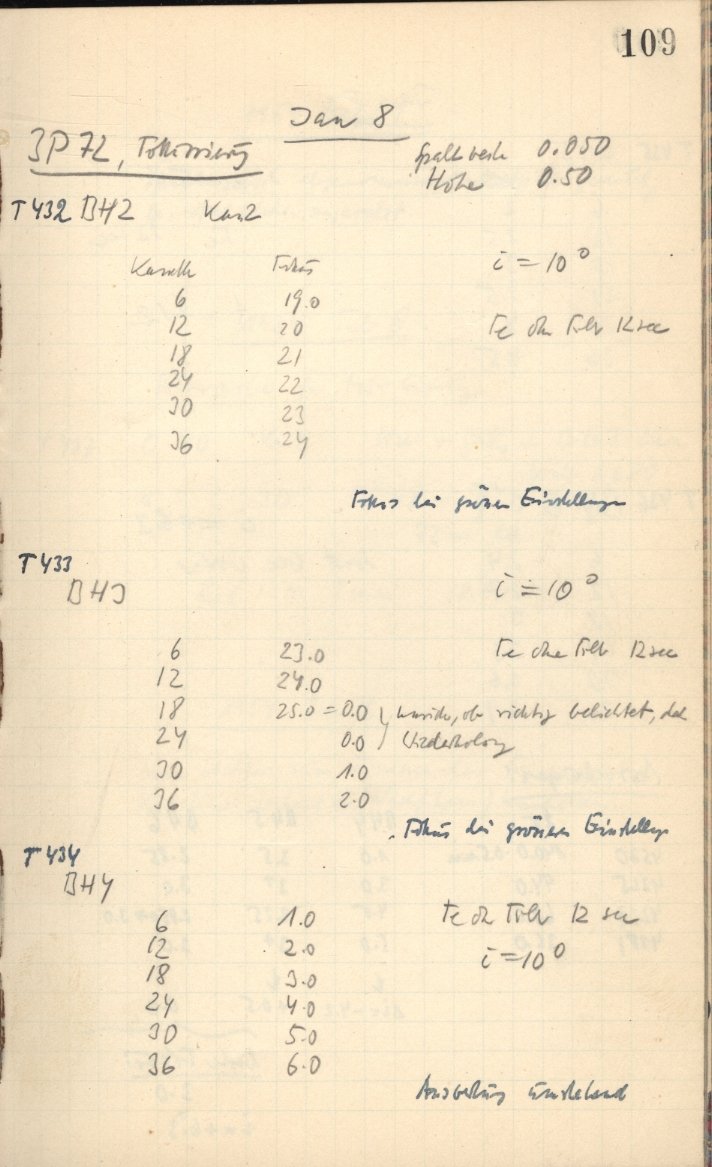 109
Jan 8
3P72, Fokussierung
Spaltbreite 0.050
Höhe 0.50
T432 BH2 Kan2
Kassette Fokus
i = 10°
6 19.0
12 20
Fe ohne Filter 12 sec
18 21
24 22
30 23
36 24
Fokus bei grösseren Einstellungen
T433
BH3
i = 10°
6 23.0
Fe ohne Filter 12 sec
12 24.0
18 25.0 = 0.0 } unsicher, ob richtig belichtet, daher
24 0.0 } Wiederholung
30 1.0
36 2.0
Fokus bei grösseren Einstellungen
T434
BH4
6 1.0
Fe ohne Filter 12 sec
12 2.0
i = 10°
18 3.0
24 4.0
30 5.0
36 6.0